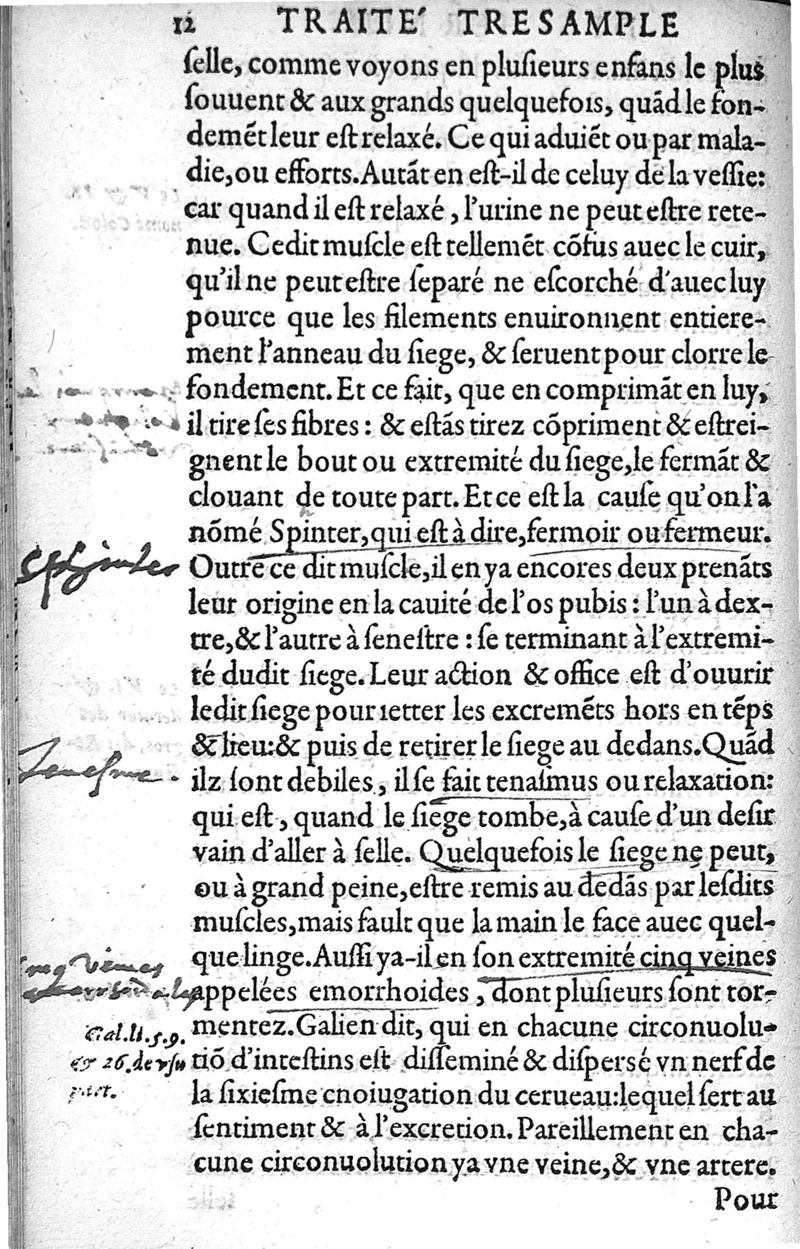 12 TRAITE´ TRESAMPLE
ſelle, comme voyons en pluſieurs enfans le plus
ſouuent & aux grands quelquefois, quãd le fon-
demẽt leur eſt relaxé. Ce qui aduiẽt ou par mala-
die, ou efforts. Autãt en eſt-il de celuy de la veſſie:
car quand il eſt relaxé, l'urine ne peut eſtre rete-
nue. Cedit muſcle eſt tellemẽt cõfus auec le cuir,
qu'il ne peut eſtre ſeparé ne eſcorché d'auec luy
pource que les filements enuironnent entiere-
ment l'anneau du ſiege, & ſeruent pour clorre le
fondement. Et ce fait, que en comprimãt en luy,
il tire ſes fibres: & eſtãs tirez cõpriment & eſtrei-
gnent le bout ou extremité du ſiege, le fermãt &
clouant de toute part. Et ce eſt la cauſe qu'on l'a
nõmé Spinter, qui eſt à dire, fermoir ou fermeur.
Outre ce dit muſcle, il en ya encores deux prenãts
leur origine en la cauité de l'os pubis: l'un à dex-
tre, & l'autre à ſeneſtre: ſe terminant à l'extremi-
té dudit ſiege. Leur action & office eſt d'ouurir
ledit ſiege pour ietter les excremẽts hors en tẽps
& lieu: & puis de retirer le ſiege au dedans. Quãd
ilz ſont debiles, il ſe fait tenaſmus ou relaxation:
qui eſt, quand le ſiege tombe, à cauſe d'un deſir
vain d'aller à ſelle. Quelquefois le ſiege ne peut,
ou à grand peine, eſtre remis au dedãs par leſdits
muſcles, mais fault que la main le face auec quel-
que linge. Auſſi ya-il en ſon extremité cinq veines
appelées emorrhoides, dont pluſieurs ſont tor-
mentez. Galien dit, qui en chacune circonuolu-
tiõ d'inteſtins eſt diſſeminé & diſperſé vn nerf de
la ſixieſme cnoiugation du cerueau: lequel ſert au
ſentiment & à l'excretion. Pareillement en cha-
cune circonuolution ya vne veine, & vne artere.
Pour
Sphinter
Tenesme
cinq veines
Gal. li. 5. 9.
& 26. de vſu
part.